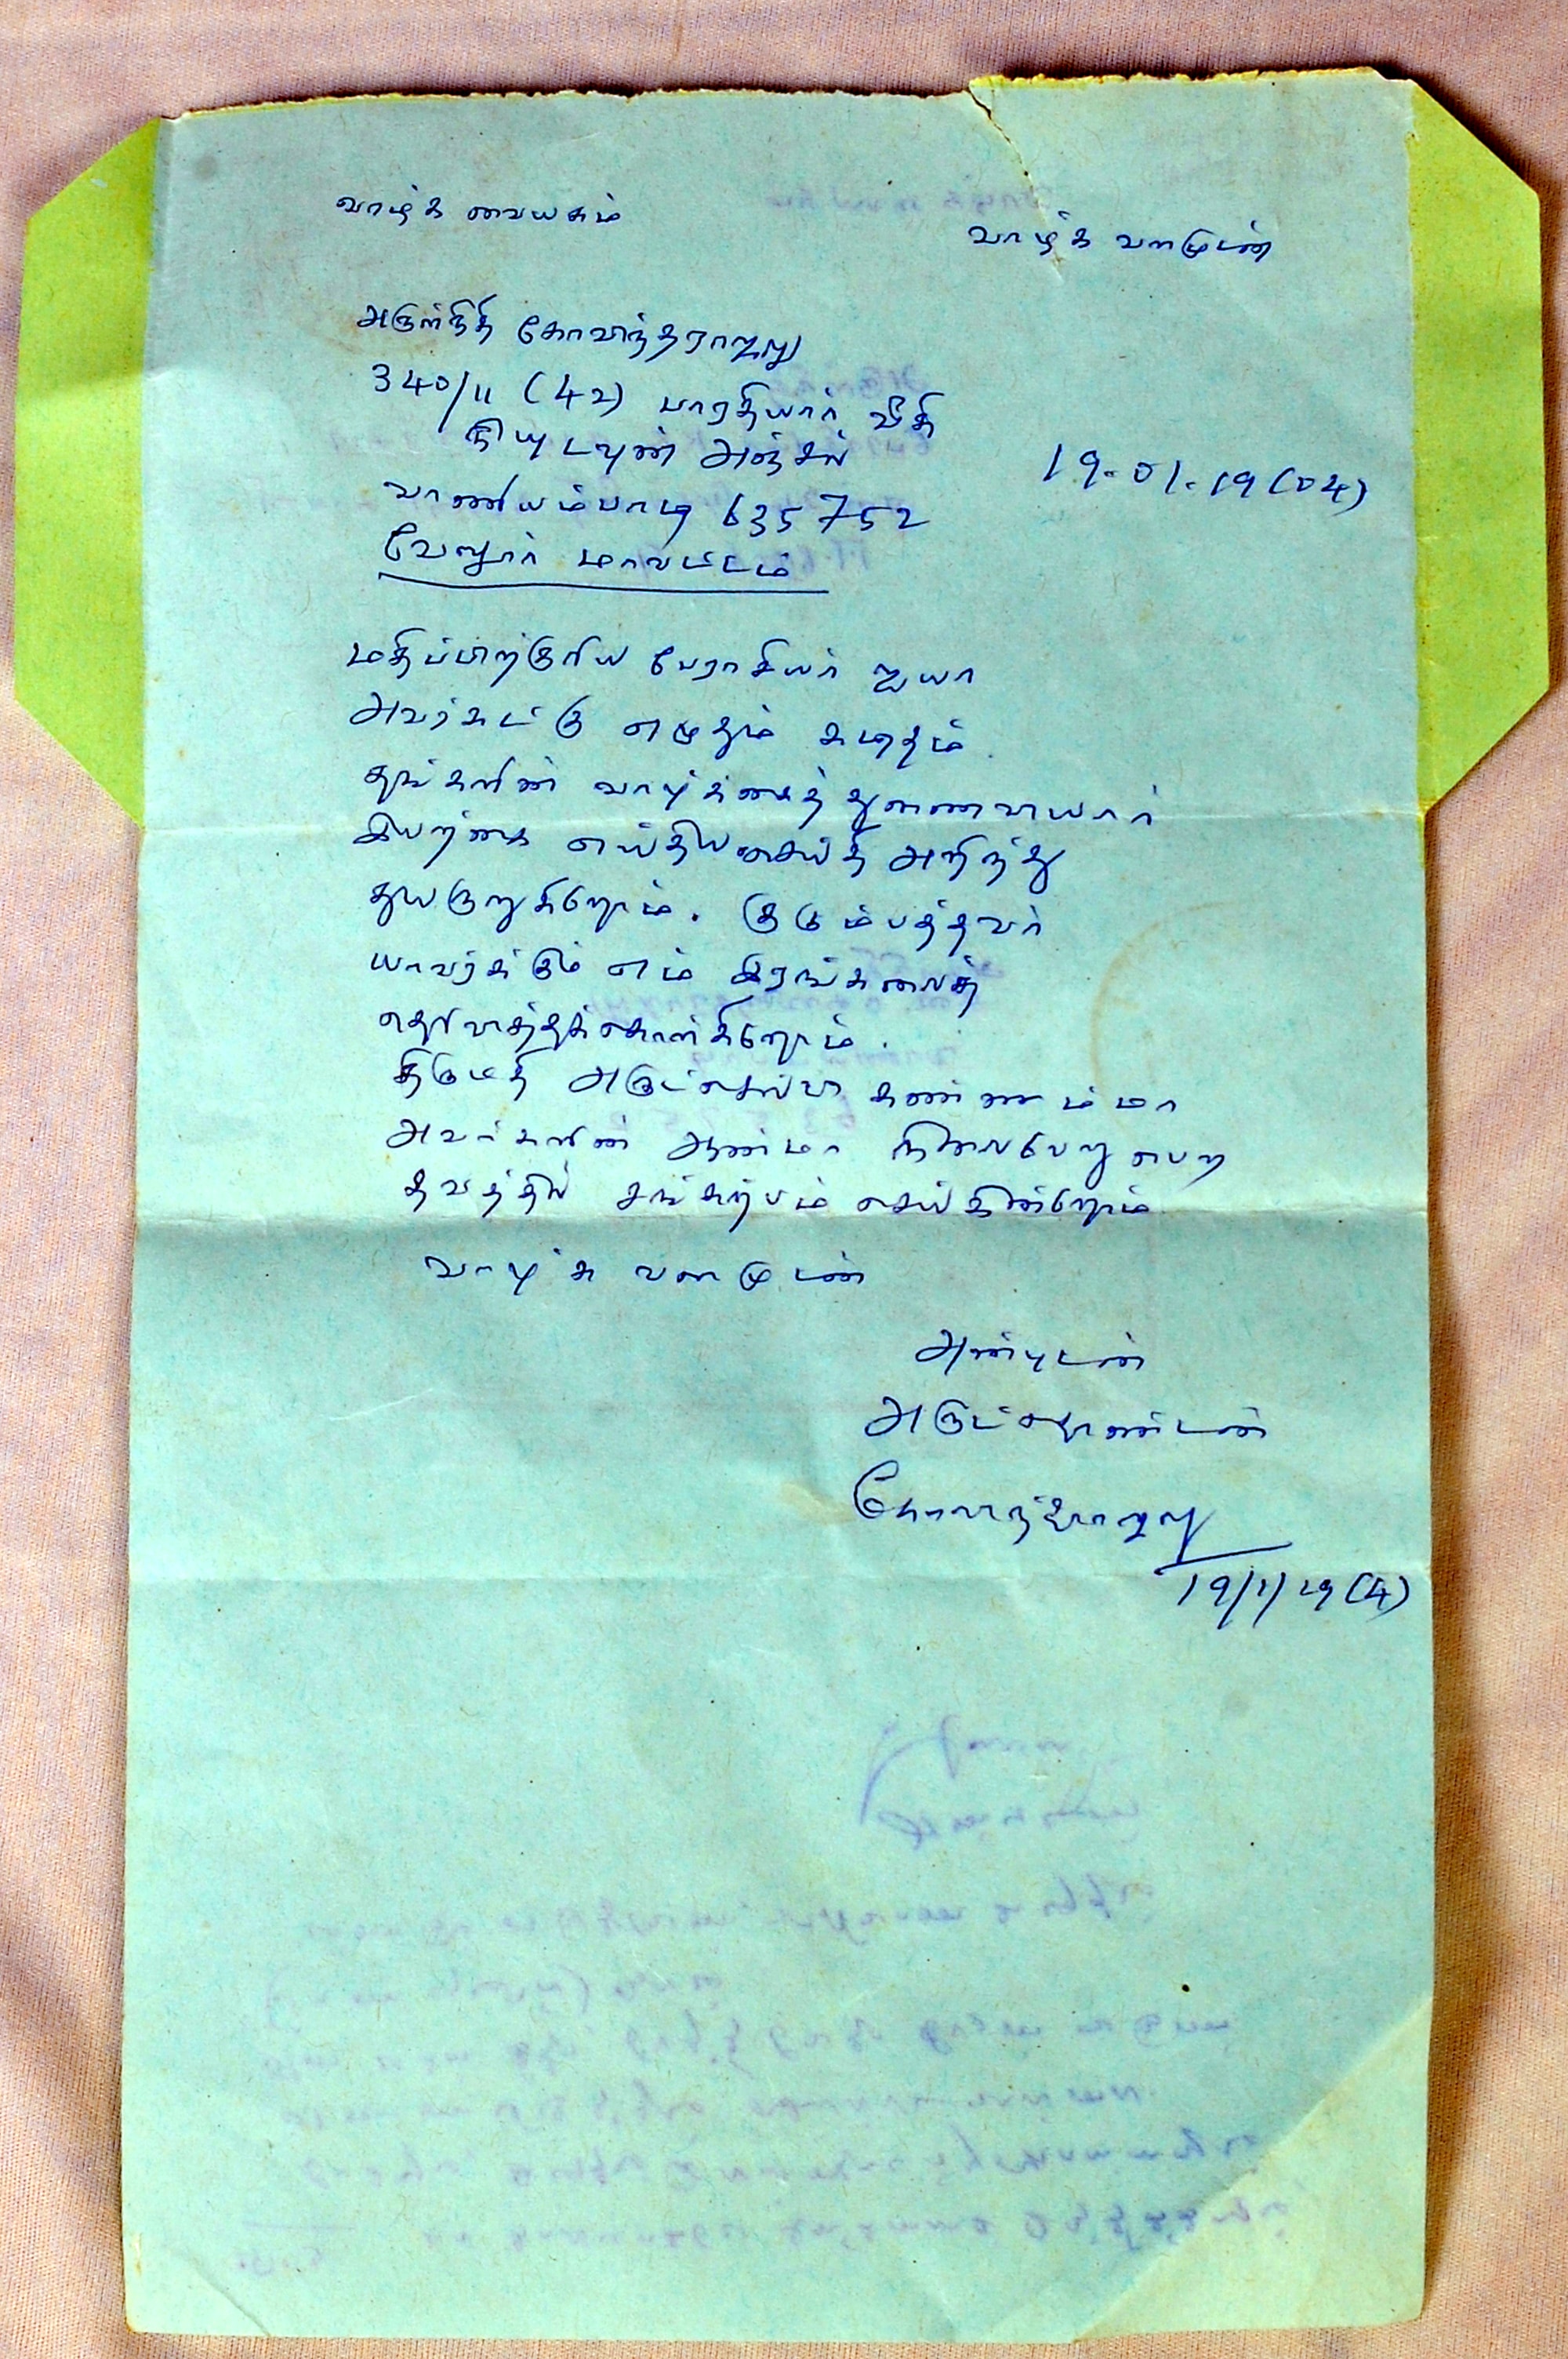 வாழ்க வையகம்
வாழ்க வளமுடன்
அருள்நிதி கோவிந்தராஜு
340/11 (42) பாரதியார் வீதி
நியுடவுன் அஞ்சல்
19-01-19 (04)
வாணியம்பாடி 635752
வேலூர் மாவட்டம்
மதிப்பிற்குரிய பேராசியர் ஐயா
அவர்கட்கு எழுதும் கடிதம்.
தங்களின் வாழ்க்கைத் துணைவியார்
இயற்கை எய்திய செய்தி அறிந்து
துயருறுகிறோம். குடும்பத்தவர்
யாவர்க்கும் எம் இரங்கலைத்
தெரிவித்துக்கொள்கிறோம்.
திருமதி அருட்செல்வி கண்ணம்மா
அவர்களின் ஆன்மா நிலைபேறு பெற
தவத்தில் சங்கற்பம் செய்கின்றோம்
வாழ்க வளமுடன்
அன்புடன்
அருட்தொண்டன்
கோவிந்தராஜு
19/1/19 (4)